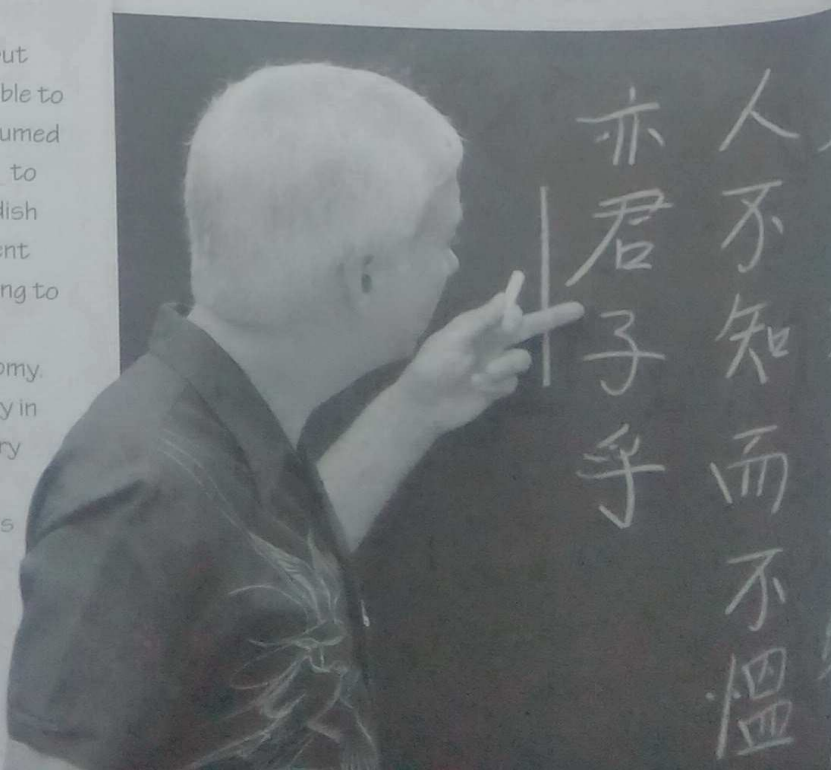 out
ble to
umed
to
dish
ent
ng to
omy.
y in
ry
s
人不知而不慍
亦君子乎